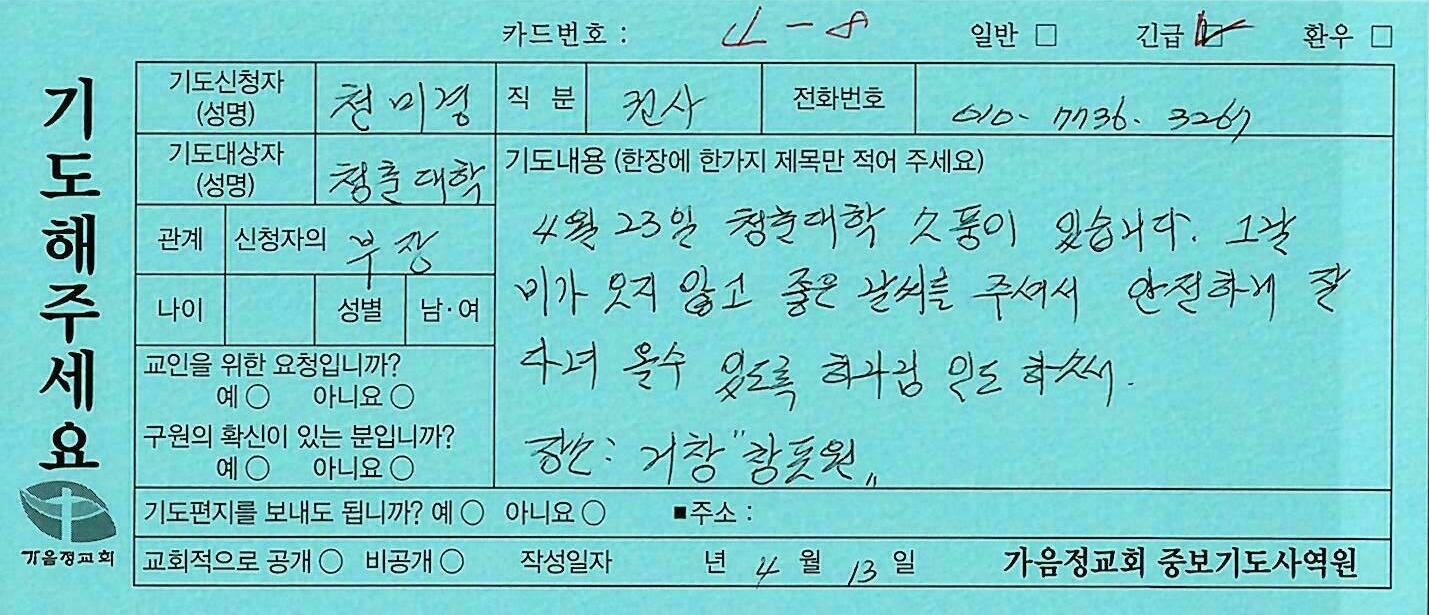 카드번호 : 4-8 일반 □ 긴급 ☑ 환우 □
기도해주세요
기도신청자 (성명) 천미경 직 분 권사 전화번호 010-7736-3267
기도대상자 (성명) 청춘대학
관계 신청자의 부장
나이 성별 남·여
교인을 위한 요청입니까?
예 ○ 아니요 ○
구원의 확신이 있는 분입니까?
예 ○ 아니요 ○
기도내용 (한장에 한가지 제목만 적어 주세요)
4월 23일 청춘대학 소풍이 있습니다. 그날
비가 오지 않고 좋은 날씨를 주셔서 안전하게 잘
다녀 올수 있도록 하나님 인도 하소서.
장소: 거창 "창포원"
기도편지를 보내도 됩니까? 예 ○ 아니요 ○ ■주소 :
교회적으로 공개 ○ 비공개 ○ 작성일자 년 4 월 13 일 가음정교회 중보기도사역원
가음정교회